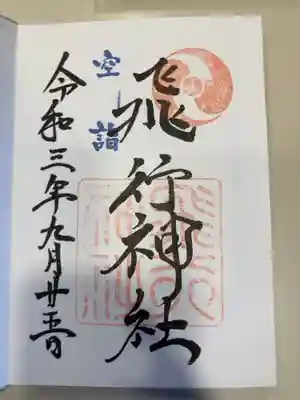 飛行神社
空詣
令和三年九月廿五日